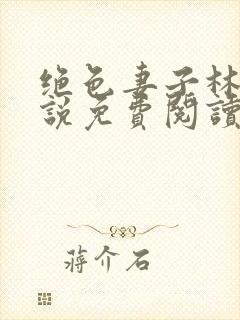 绝色妻子林
説免費閱讀
蔣介石